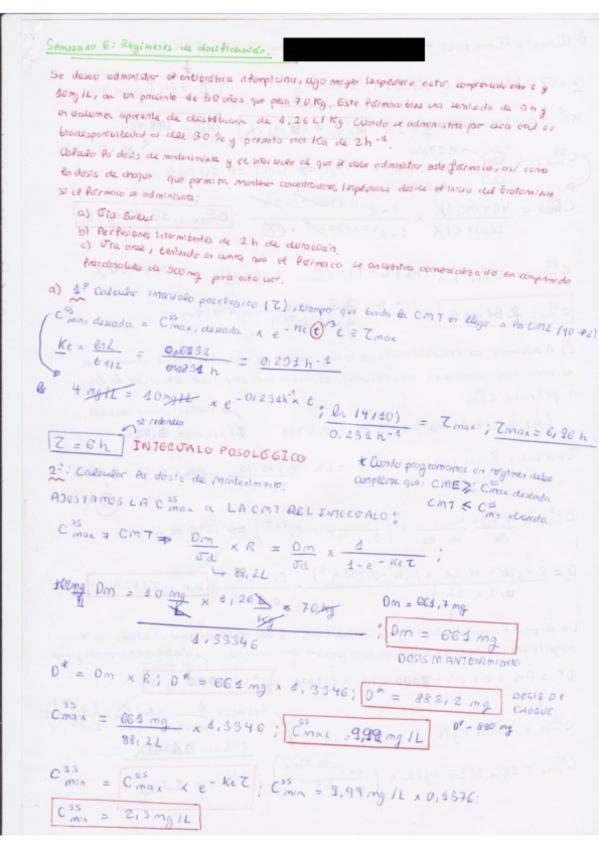 Seminario 6: Regímenes de dosificación.
Se desea administrar el antibiótico rifampicina, cuyo margen terapéutico está comprendido entre
10 mg/L, a un paciente de 50 años que pesa 70 Kg. Este fármaco tiene una semivida de 3 h y
un volumen aparente de distribución de 1,26 L/Kg. Cuando se administra por vía oral su
biodisponibilidad es del 90 % y presenta una Ka de 2 h⁻¹.
Calcular la dosis de mantenimiento y el intervalo al que se debe administrar este fármaco, así como
la dosis de choque que permita mantener concentraciones terapéuticas desde el inicio del tratamiento
si el fármaco se administra:
a) Vía
b) Perfusiones intermitentes de 2 h de duración.
c) Vía oral, teniendo en cuenta que el fármaco se encuentra comercializado en comprimidos
de 300 mg para esta vía.
a) 1º Calcular intervalo posológico (τ), tiempo que tarda la CMT en llegar a la CME (10 →2)
C ss min, deseada = C ss max, deseada x e - Ke t t = τmax
Ke = ln2 / t 1/2 = / h = 0,231 h⁻¹
mg/L = 10 mg/L x e - 0,231h⁻¹ x t ; ln / 0,231 h⁻¹ = τmax ; τmax = 6,96 h
se redondea
τ = 6h INTERVALO POSOLÓGICO
2º: Calcular la dosis de mantenimiento:
* Cuando programamos un régimen debe
cumplirse que: CME ≥ C ss max deseada
CMT ≤ C ss min deseada
AJUSTAMOS LA C ss max A LA CMT DEL INTERVALO:
C ss max = CMT ⇒ Dm / Vd x R = Dm / Vd x 1 / 1 - e - Keτ ;
↳ 88,2L
Dm = 10 mg / L x 1,26 L / Kg x 70 Kg / 1,33346 ; Dm = 661,7 mg
Dm = 661 mg
DOSIS MANTENIMIENTO
D* = Dm x R ; D* = 661 mg x 1,3346 ; D* = 882,2 mg DOSIS DE
CHOQUE
C ss max = 661 mg / 88,2 L x 1,3346 ; C ss max = 9,99 mg/L D* = 880 mg
C ss min = C ss max x e - Keτ ; C ss min = 9,99 mg/L x
C ss min = 2,5 mg/L